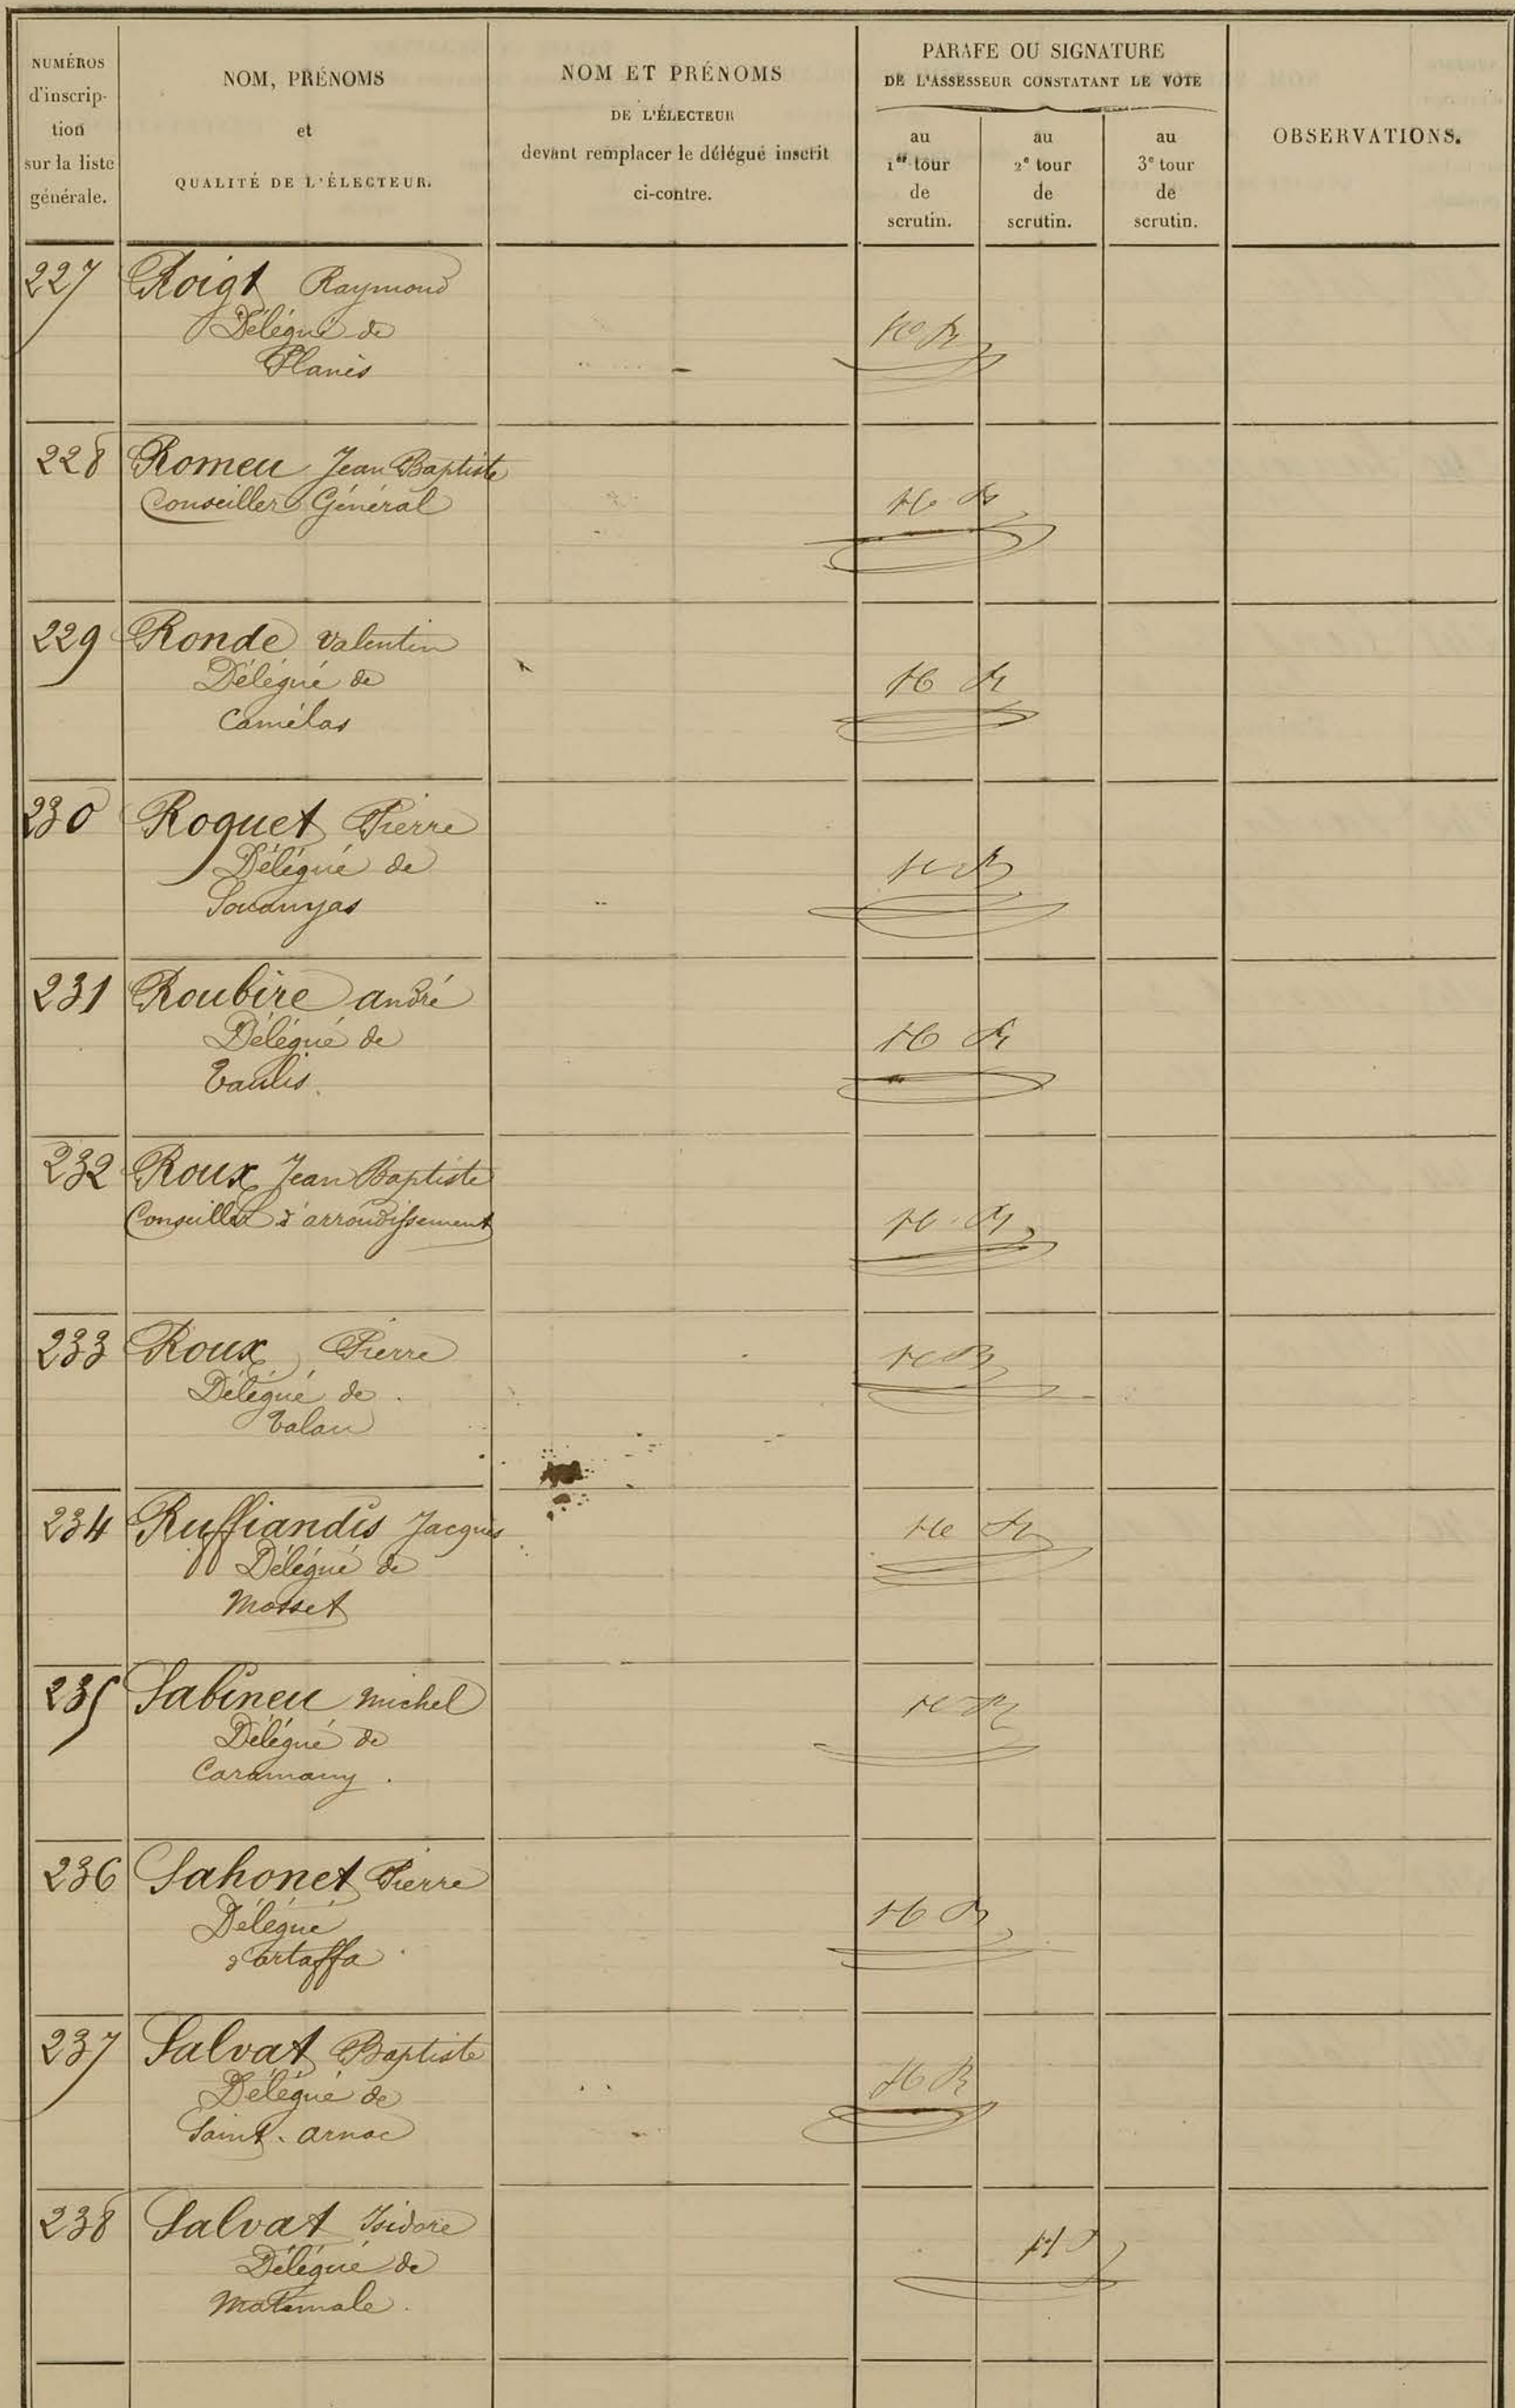 NUMÉROS
d'inscrip-
tion
sur la liste
générale.
NOM, PRÉNOMS
et
QUALITÉ DE L'ÉLECTEUR.
NOM ET PRÉNOMS
DE L'ÉLECTEUR
devant remplacer le délégué inscrit
ci-contre.
PARAFE OU SIGNATURE
DE L'ASSESSEUR CONSTATANT LE VOTE
au
1er tour
de
scrutin.
au
2e tour
de
scrutin.
au
3e tour
de
scrutin.
OBSERVATIONS.
227 Roigt Raymond
Délégué de
Planès
228 Romeu Jean Baptiste
Conseiller Général
229 Ronde Valentin
Délégué de
Camélas
230 Roquet Pierre
Délégué de
Souanyas
231 Roubire andré
Délégué de
Taulis.
232 Roux Jean Baptiste
Conseiller d'arrondissement
233 Roux Pierre
Délégué de
Talau
234 Ruffiandis Jacques
Délégué de
Mosset
235 Sabineu Michel
Délégué de
Caramany.
236 Sahonet Pierre
Délégué
d'ortaffa
237 Salvat Baptiste
Délégué de
Saint-arnac
238 Salvat Isidore
Délégué de
Matemale.